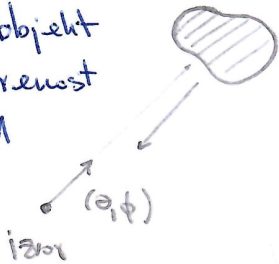 objekt
renost
M
(θ,ϕ)
izvor